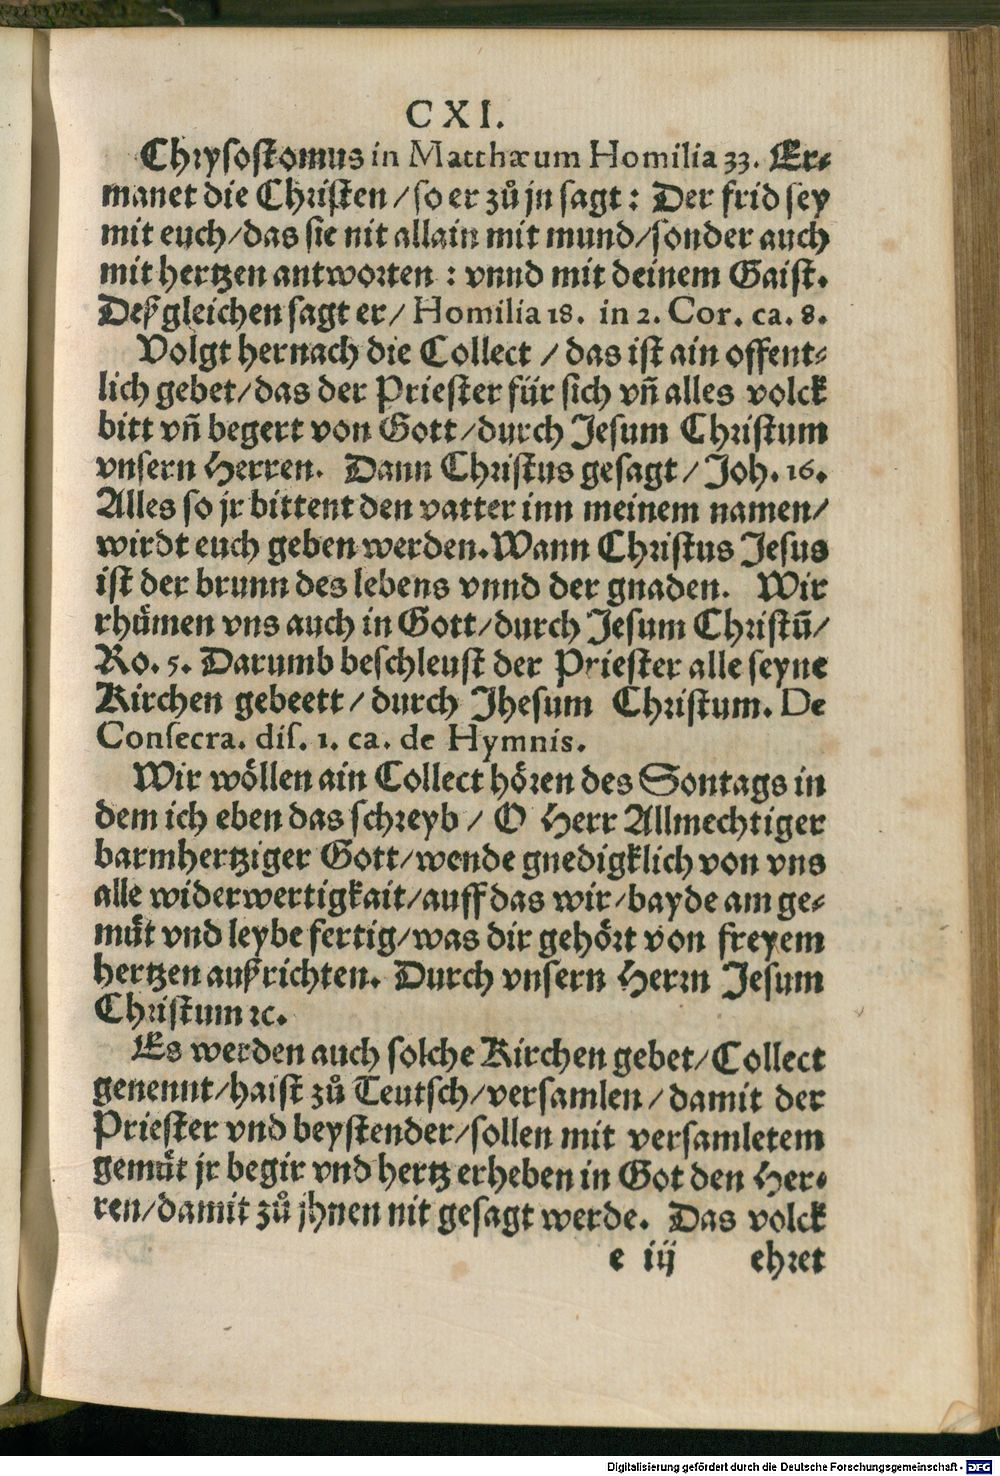 CXI.
Chrysostomus in Matthæum Homilia 33. Er⸗
manet die Christen / so er zů jn sagt : Der frid sey
mit euch / das sie nit allain mit mund / sonder auch
mit hertzen antworten : vnnd mit deinem Gaist.
Deßgleichen sagt er / Homilia 18. in 2. Cor. ca. 8.
Volgt hernach die Collect / das ist ain offent⸗
lich gebet / das der Priester für sich vñ alles volck
bitt vñ begert von Gott / durch Jesum Christum
vnsern Herren. Dann Christus gesagt / Joh. 16.
Alles so jr bittent den vatter inn meinem namen /
wirdt euch geben werden. Wann Christus Jesus
ist der brunn des lebens vnnd der gnaden. Wir
rhuͤmen vns auch in Gott / durch Jesum Christū /
Ro. 5. Darumb beschleust der Priester alle seyne
Kirchen gebeett / durch Jhesum Christum. De
Consecra. dis. 1. ca. de Hymnis.
Wir woͤllen ain Collect hoͤren des Sontags in
dem ich eben das schreyb / O Herr Allmechtiger
barmhertziger Gott / wende gnedigklich von vns
alle widerwertigkait / auff das wir / bayde am ge⸗
muͤt vnd leybe fertig / was dir gehoͤrt von freyem
hertzen außrichten. Durch vnsern Herrn Jesum
Christum ꝛc.
Es werden auch solche Kirchen gebet / Collect
genennt / haist zů Teutsch / versamlen / damit der
Priester vnd beystender / sollen mit versamletem
gemuͤt jr begir vnd hertz erheben in Got den Her⸗
ren / damit zů jhnen nit gesagt werde. Das volck
e iij ehret
Digitalisierung gefördert durch die Deutsche Forschungsgemeinschaft - DFG